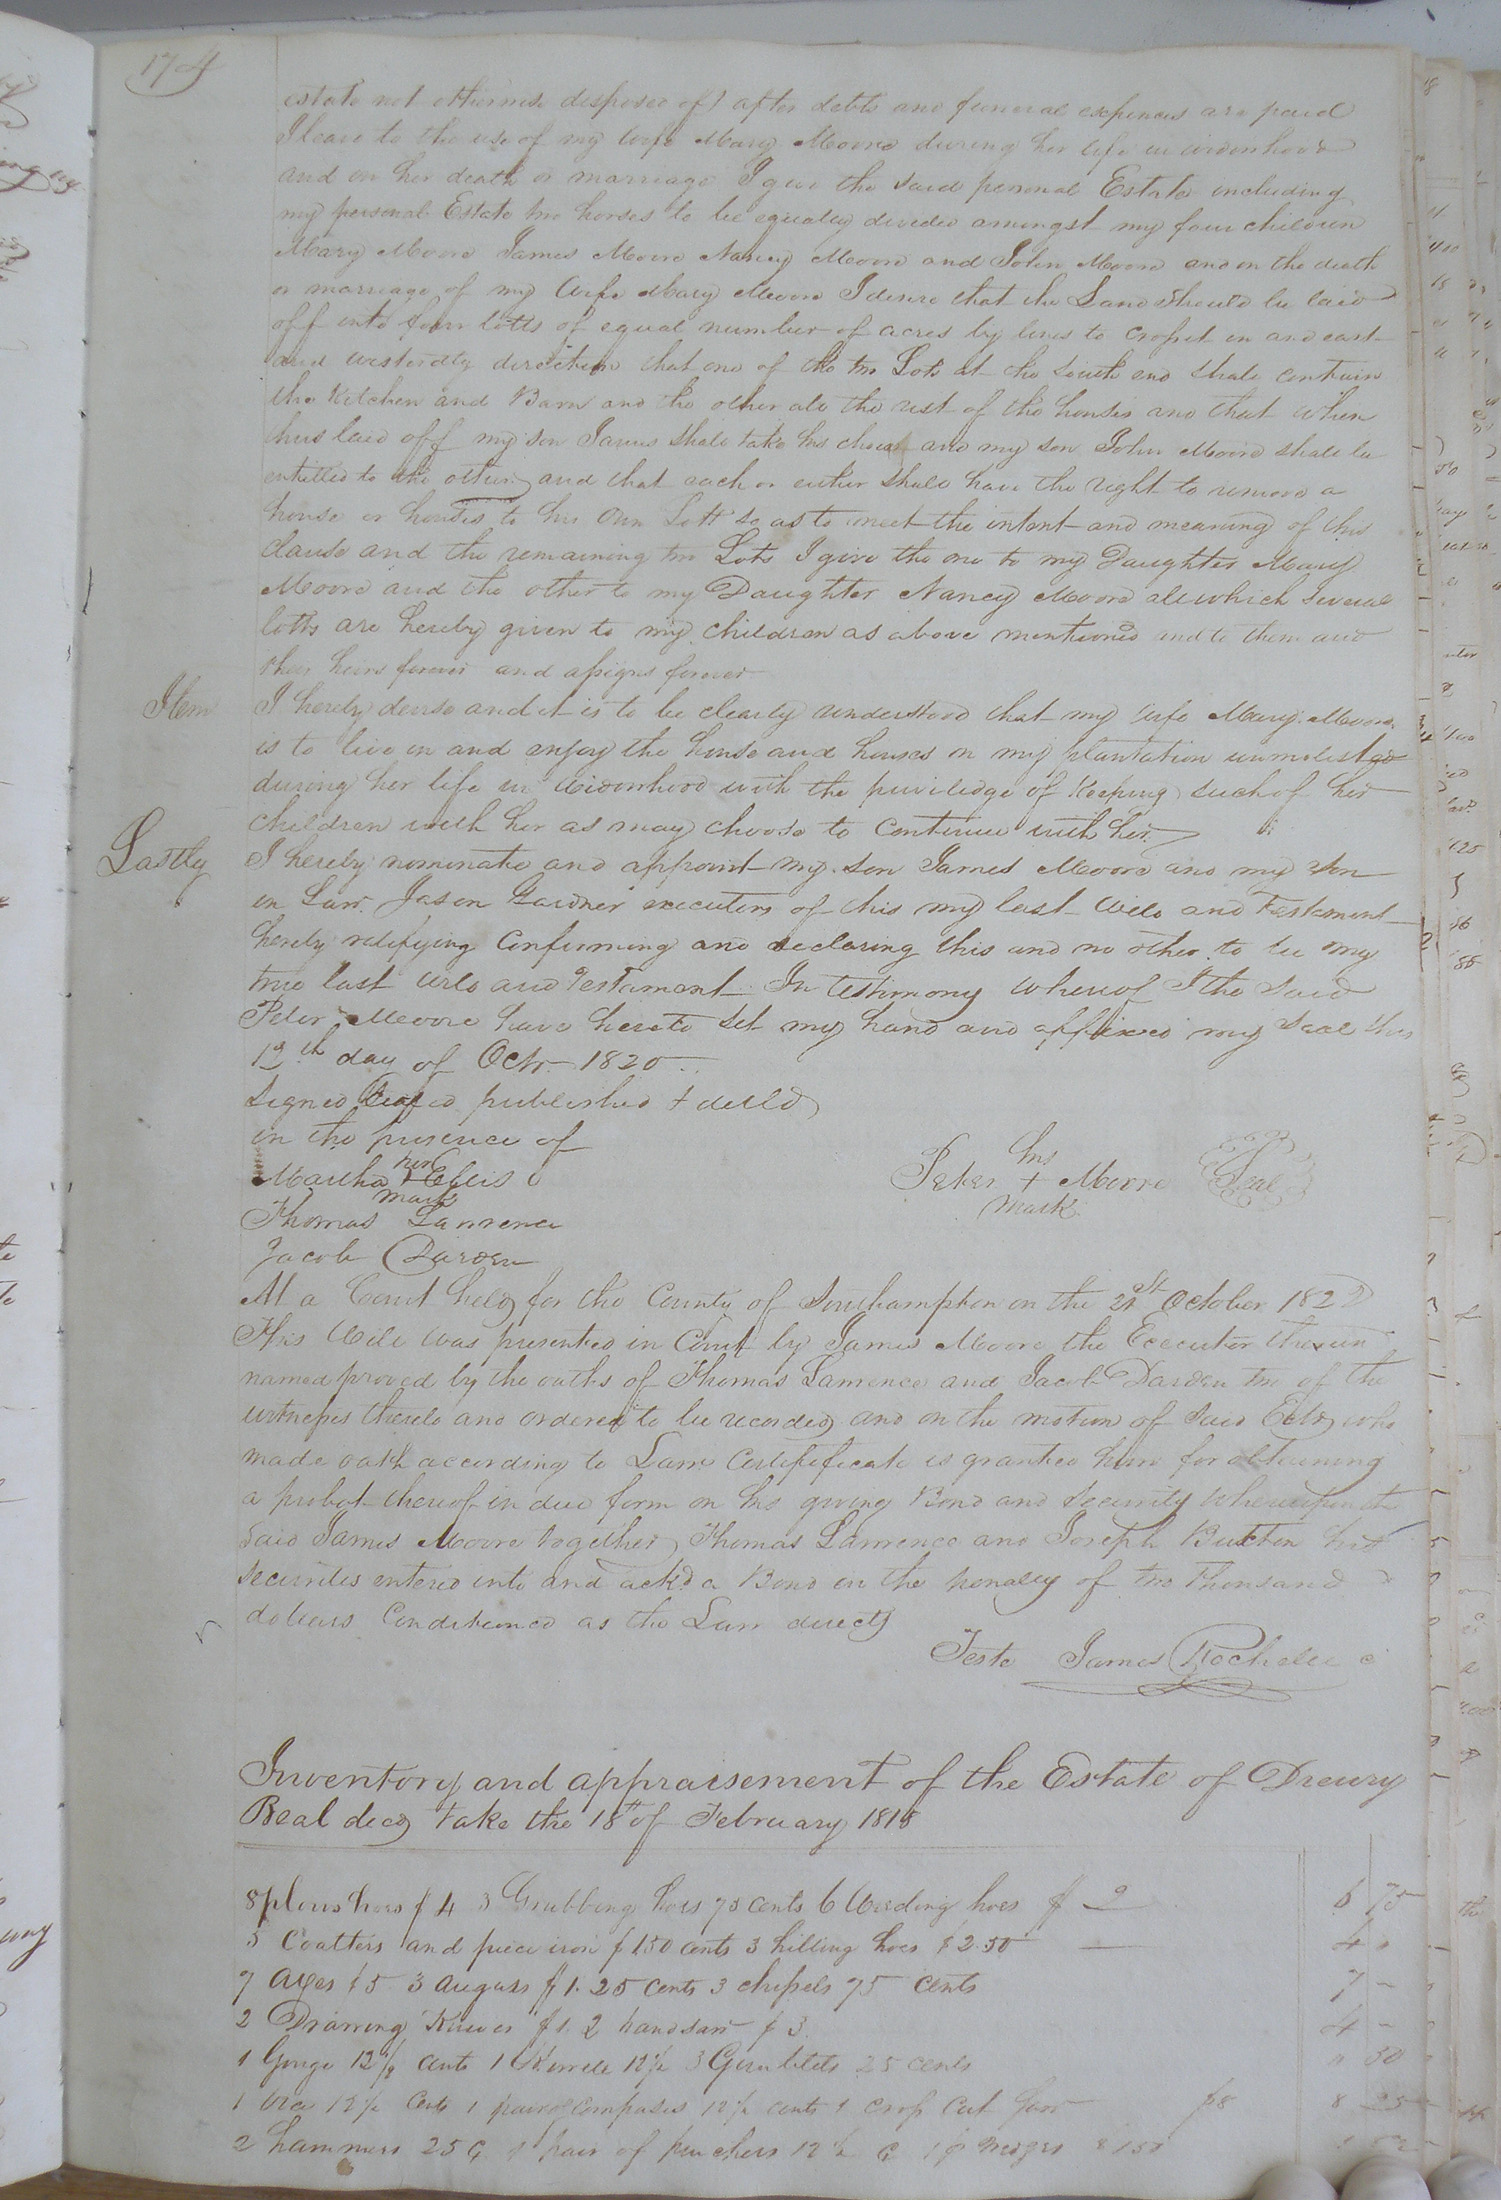 174
estate not otherwise disposed of) after debts and funeral expences are paid
I leave to the use of my wife Mary Moore during her life in widowhood
and on her death or marriage I give the said personal Estate including
my personal Estate two horses to be equally divided amongst my four children
Mary Moore James Moore Nancy Moore and John Moore and on the death
or marriage of my Wife Mary Moore I desire that the Land should be laid
off into four lotts of equal number of acres by lines to cross it in and east
and westerdly direction that one of the two Lots at the South end shall contain
the Kitchen and Barn and the other all the rest of the houses and that when
thus laid off my son James shall take his choice and my son John Moore shall be
entitled to the other and that each or either shall have the right to remove a
house or houses to his own Lott so as to meet the intent and meaning of this
clause and the remaining two Lots I give the one to my Daughter Mary
Moore and the other to my Daughter Nancy Moore all which several
lotts are hereby given to my children as above mentioned and to them and
their heirs forever and assigns forever
Item I hereby devise and it is to be clearly understood that my wife Mary Moore
is to live in and enjoy the house and houses on my plantation unmolested
during her life in Widowhood with the priviledge of Keeping such of her
children with her as may choose to continue with her
Lastly I hereby nominate and appoint my son James Moore and my son
in Law Jason Gardner executors of this my last Will and Testament
hereby ratifying confirming and declaring this and no other to be my
true last will and Testament In testimony whereof I the said
Peter Moore have hereto set my hand and affixed my seal this
12th day of Octr 1820
Signed Sealed published & delld
in the presence of
Martha her + mark Ellis
Peter his + mark Moore Seal
Thomas Lawrence
Jacob Darden
At a Court held for the County of Southampton on the 21st October 1822
This Will was presented in Court by James Moore the Executor therein
named proved by the oaths of Thomas Lawrence and Jacob Darden two of the
witnesses thereto and ordered to be recorded and on the motion of said Extr who
made oath according to Law Certifificate is granted him for obtaining
a probat thereof in due form on his giving Bond and Security whereupon the
said James Moore together Thomas Lawrence and Joseph his
securities entered into and ackd a Bond in the penalty of two Thousand
dollars Conditioned as the Law directs
Teste James Rochelle c
Inventory and appraisement of the Estate of Drewry
Beal decd take the 18th of February 1818
8 plow hoes $ 4 3 Grubbing hoes 75 cents 6 Weeding hoes $ 2 6 75
5 Coatters and piece iron $ 1.50 cents 3 hilling hoes $ 2.50 4
7 axes $5 3 augars $1.25 cents 3 chissels 75 cents 7 -
2 Drawing Knives $1. 2 handsaw $ 3. 4 -
1 Gouge 12½ cents 1 12½ 3 Gimblets 25 cents 50
1 12½ cents 1 pair of compasses 12½ cents 1 cross cut saw $8 8 25
2 hammers 25 C 1 pair of pinchers 12½ C 1 p wedges $ 1.50